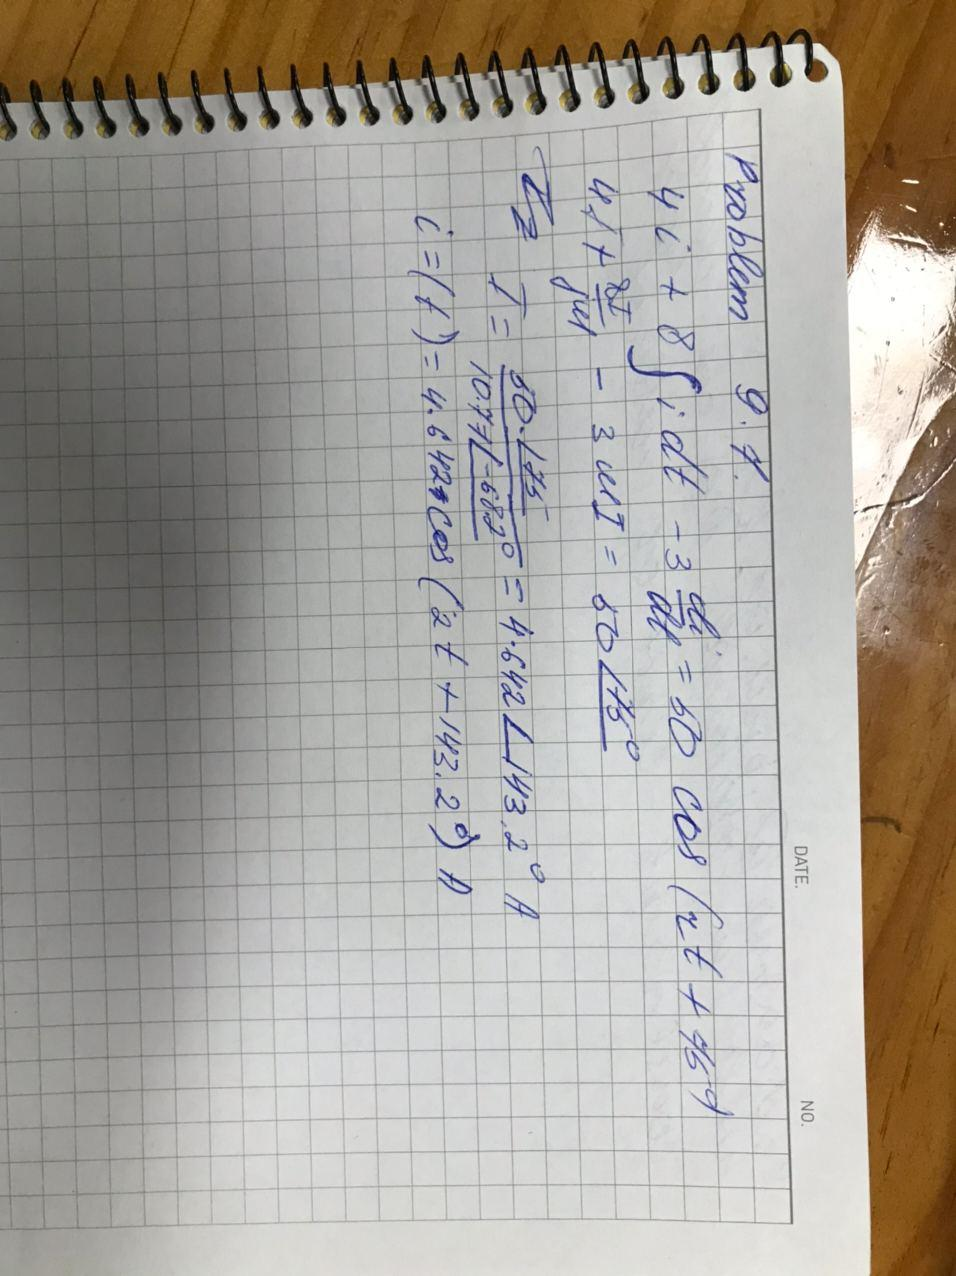 DATE.
NO.
Problem 9.7.
4i + 8 ∫ i dt - 3 di/dt = 50 cos (2t + 75°)
4I + 8I/jw - 3 jwI = 50 ∠75°
I = 50 ∠75° / 10.77 ∠-68.2° = 4.642 ∠143.2° A
i = (t) = 4.642 cos (2t + 143.2°) A